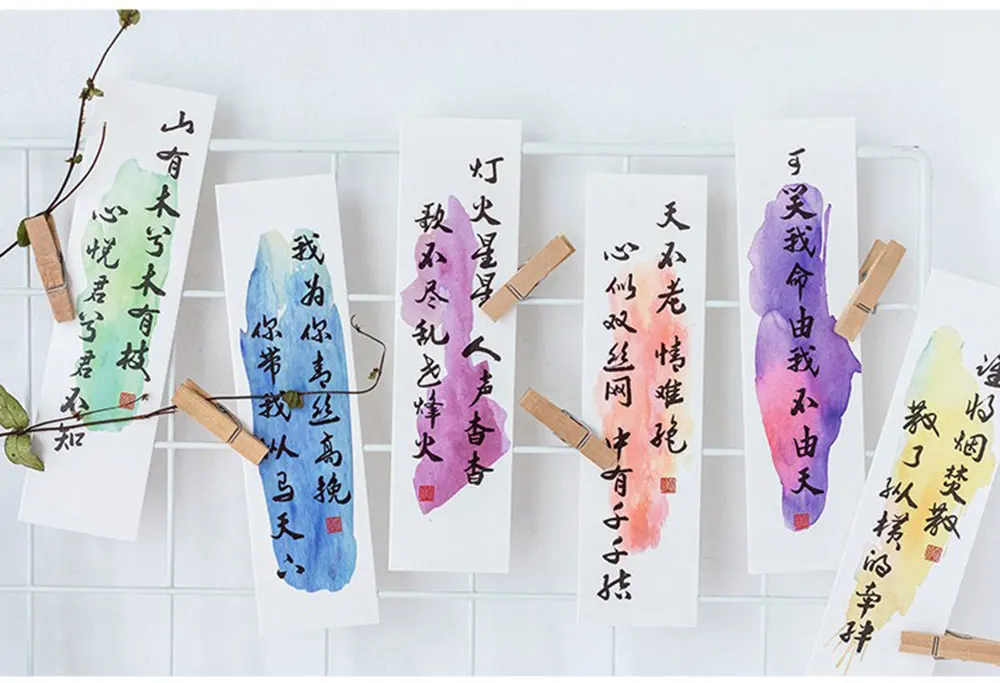 山有木兮木有枝
心悦君兮君不知
我为你青丝高挽
你带我从马天下
灯火星星人声杳杳
歌不尽乱世烽火
天不老情难绝
心似双丝网中有千千结
可笑我命由我不由天
谁将烟焚散
散了纵横的牵绊